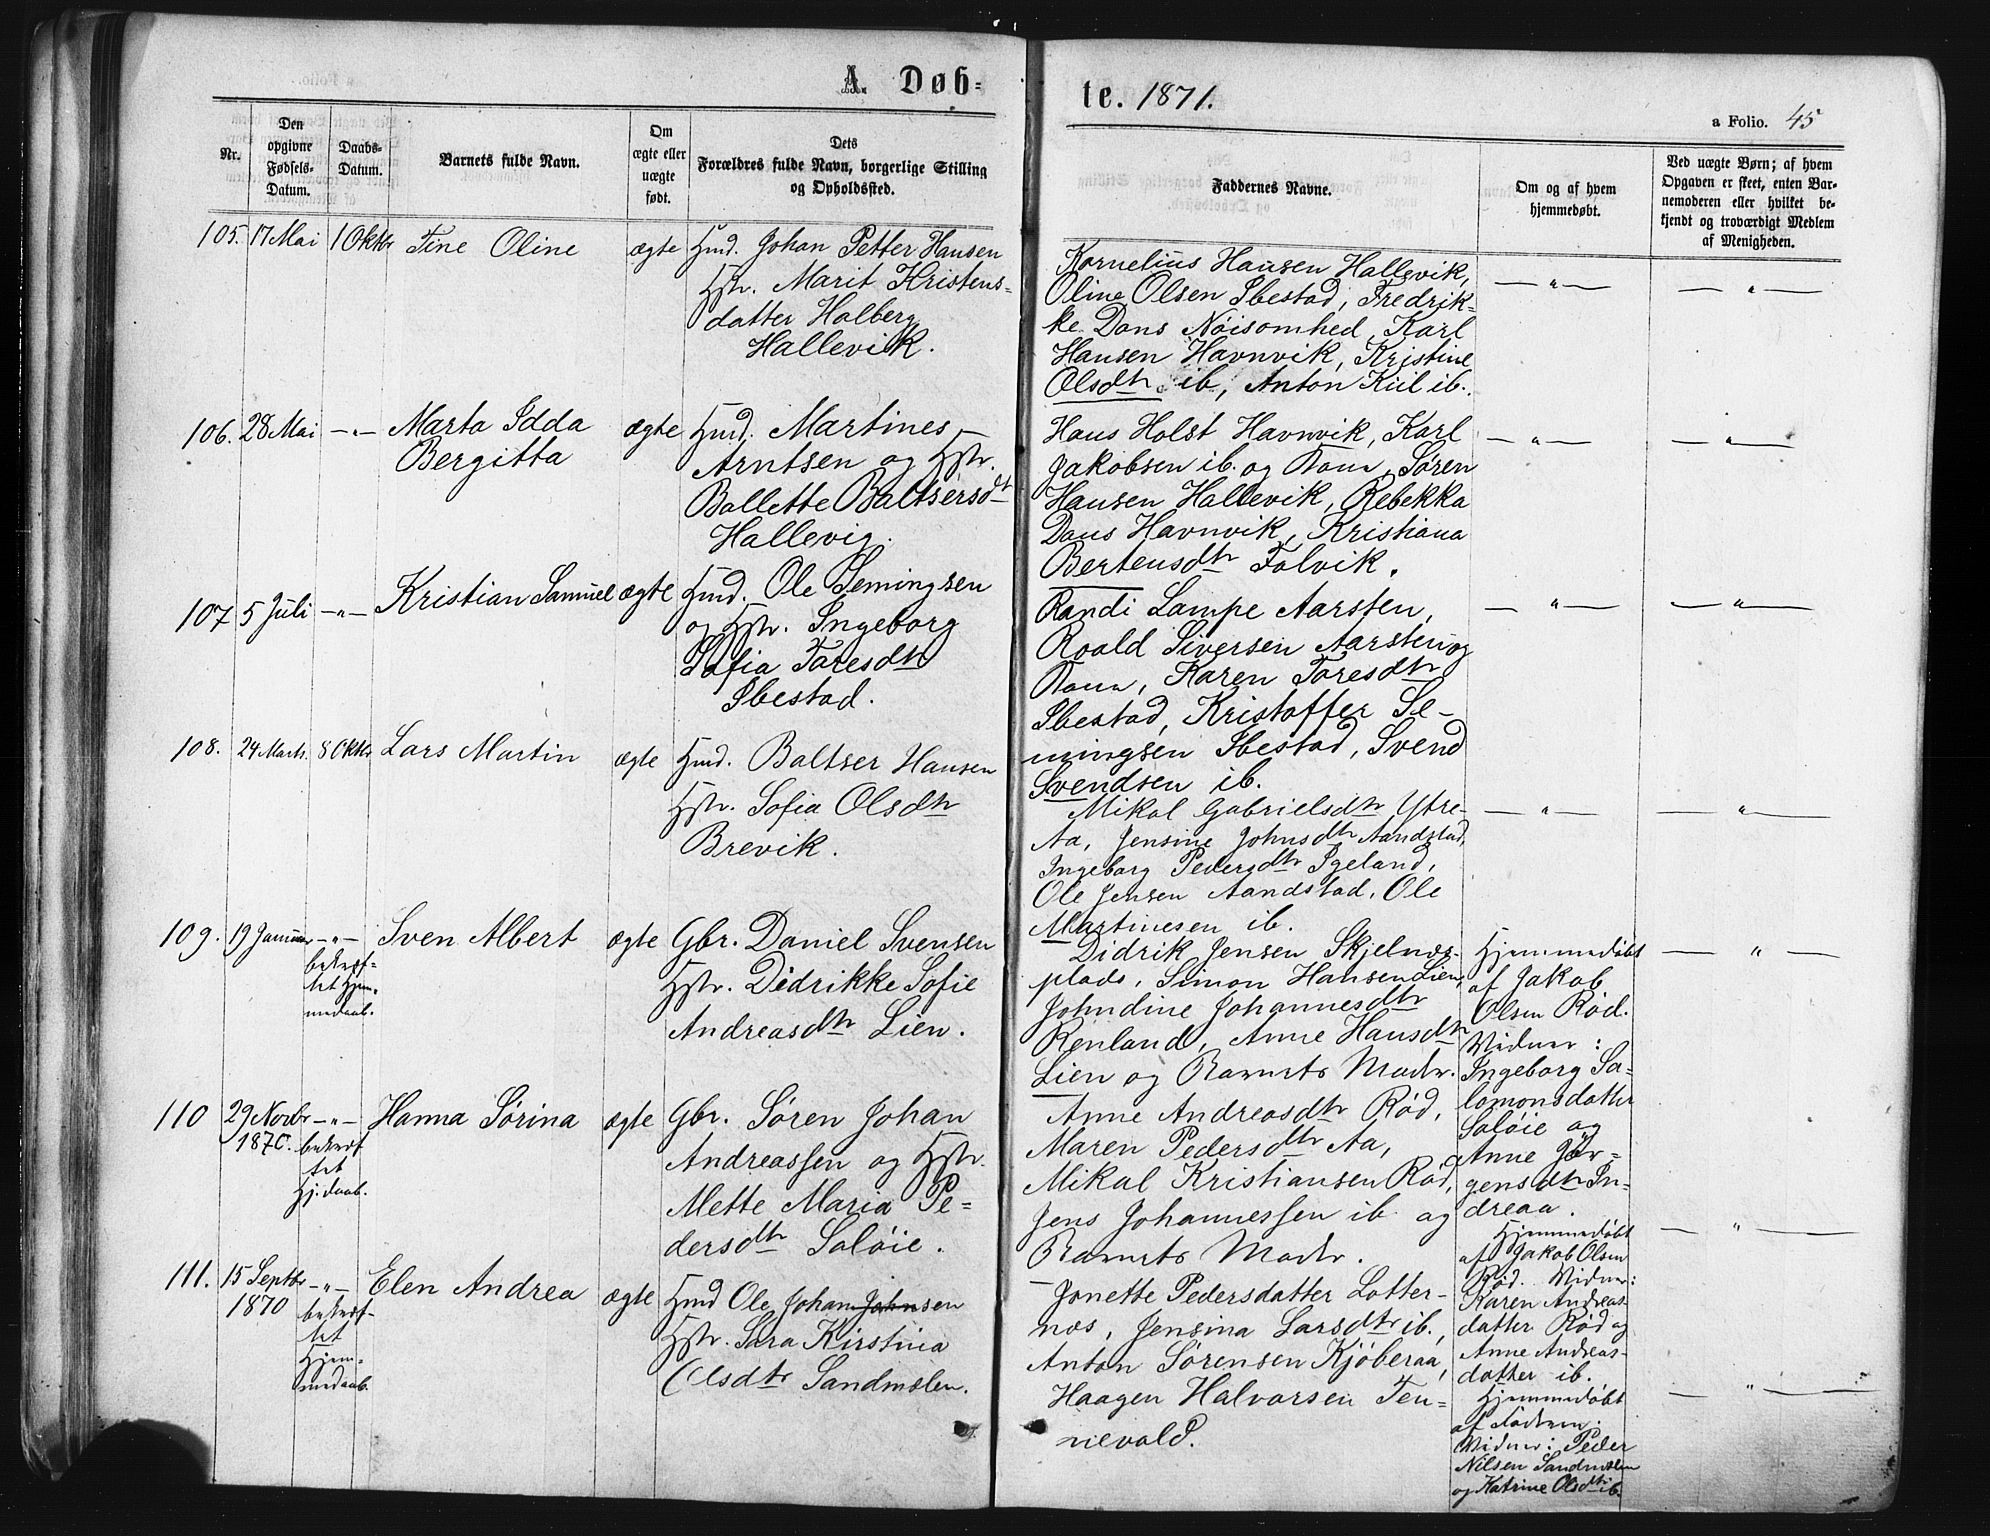 A. Døb=
te. 1871.
a Folio. 45
Nr.
Den
opgivne
Fødsels-
Datum.
Daabs-
Datum.
Barnets fulde Navn.
Om
ægte eller
uægte
født.
Dets
Forældres fulde Navn, borgerlige Stilling
og Opholdssted.
Faddernes Navne.
Om og af hvem
hjemmedøbt.
Ved uægte Børn; af hvem
Opgaven er skeet, enten Bar-
nemoderen eller hvilket be-
kjendt og troværdigt Medlem
af Menigheden.
105. 17 Mai 1 Oktbr Tine Oline ægte
Hmd. Johan Petter Hansen
Hstr. Marit Kristens=
datter Holberg
Hallevik.
Kornelius Hansen Hallevik,
Oline Olsen Ibestad, Fredrik-
ke Dons Nøisomhed, Karl
Hansen Havnvik, Kristine
Olsdtr ib, Anton Kiil ib.
— " —
— " —
106. 28 Mai — " — Marta Idda
Bergitta
ægte
Hmd. Martines
Arntsen og Hstr.
Ballette Baltsersdtr
Hallevig.
Hans Holst Havnvik, Karl
Jakobsen ib. og Kone, Søren
Hansen Hallevik, Rebekka
Dons Havnvik, Kristiana
Bertensdtr Folvik.
— " —
— " —
107 5 Juli — " — Kristian Samuel ægte
Hmd. Ole Semingsen
og Hstr. Ingeborg
Sofia Toresdtr
Ibestad.
Randi Lampe Aarsten,
Roald Siversen Aarsten og
Kone, Karen Toresdtr
Ibestad, Kristoffer Se-
mingsen Ibestad, Svend
Svendsen ib.
— " —
— " —
108. 24 Marts. 8 Oktbr Lars Martin ægte
Hmd. Baltser Hansen
Hstr. Sofia Olsdtr
Brevik.
Mikal Gabrielsdtr Ytre-
Aa, Jensine Johnsdtr Aandstad,
Ingeborg Pedersdtr Igeland,
Ole Jensen Aandstad, Ole
Martinesen ib.
— " —
— " —
109. 19 Januar — " —
bekræf-
tet Hjem-
medaab.
Sven Albert ægte
Gbr. Daniel Svensen
Hstr. Didrikke Sofie
Andreasdtr Lien.
Didrik Jensen Skjelnes-
plads, Simon Hansen Lien,
Johndine Johannesdtr
Renland, Anne Hansdtr
Lien og Barnets Moder.
Hjemmedøbt
af Jakob
Olsen Rød.
Vidner:
Ingeborg Sa-
lomonsdatter
Saløie og
Anne Jør-
gensdtr In-
dreaa.
— " —
110 29 Novbr
1870.
— " —
bekræf
tet
Hj.daab.
Hanna Sørina ægte
Gbr. Søren Johan
Andreassen og Hstr.
Mette Maria Pe-
dersdtr Saløie.
Anne Andreasdtr Rød,
Maren Pedersdtr Aa,
Mikal Kristiansen Rød,
Jens Johannessen ib og
Barnets Moder.
Hjemmedøbt
af Jakob Olsen
Rød. Vidner:
Karen Andreas-
datter Rød og
Anne Andreas-
datter ib.
— " —
111. 15 Septbr
1870
— " —
bekræf-
tet
Hjem-
medaab.
Elen Andrea ægte
Hmd Ole Johan Johnsen
Hstr. Sara Kirstina
Olsdtr Sandmælen.
Jonette Pedersdatter Lotter-
næs, Jensina Larsdtr ib.,
Anton Sørensen Kjøberaa,
Haagen Halvorsen Ten-
nevold.
Hjemmedøbt
af Faderen:
Vidner: Peder
Nilsen Sandmælen
og Katrine Olsdtr ib.
— " —